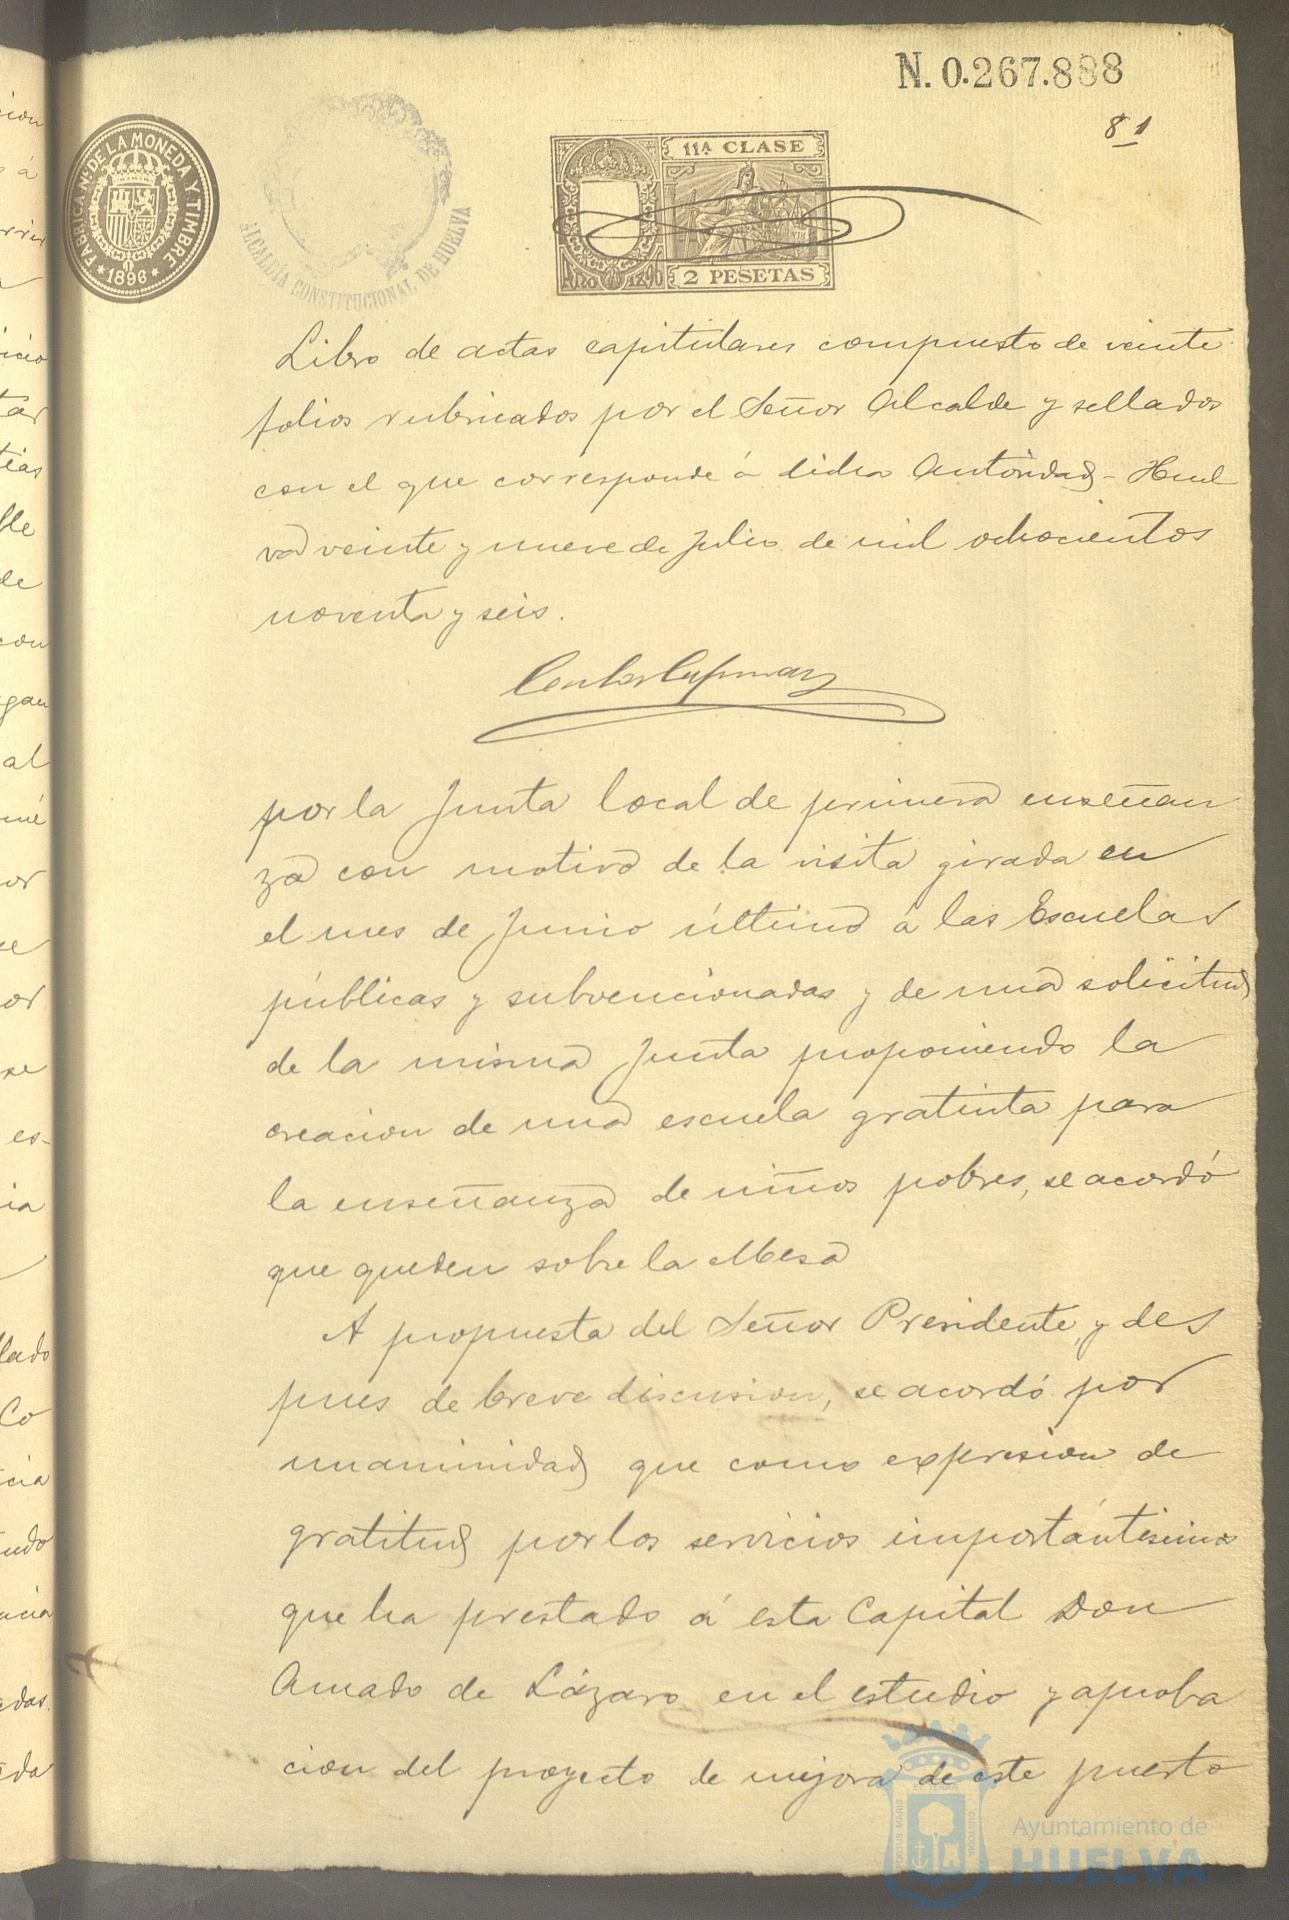 N. 0.267.888
81
FÁBRICA Nal. DE LA MONEDA Y TIMBRE
* 1896 *
ALCALDÍA CONSTITUCIONAL DE HUELVA
11ª CLASE
2 PESETAS
Libro de actas capitulares compuesto de veinte
folios rubricados por el Señor Alcalde y sellados
con el que corresponde á dicha Autoridad - Huel
va veinte y nueve de Julio de mil ochocientos
noventa y seis.
por la Junta local de primera enseñan
za con motivo de la visita girada en
el mes de Junio último á las Escuelas
públicas y subvencionadas y de una solicitud
de la misma Junta proponiendo la
creacion de una escuela gratuita para
la enseñanza de niños pobres, se acordó
que queden sobre la Mesa
A propuesta del Señor Presidente, y des
pues de breve discusion, se acordó por
unanimidad que como expresion de
gratitud por los servicios importántisimos
que ha prestado á esta Capital Don
Amado de Lázaro en el estudio y aproba
cion del proyecto de mejora de este puerto
Ayuntamiento de
HUELVA